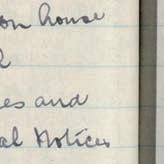 on house
es and
al Notices